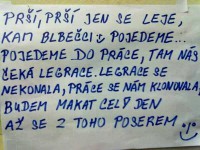 PRŠÍ, PRŠÍ JEN SE LEJE,
KAM BLBEČCI POJEDEME...
POJEDEME DO PRÁCE, TAM NÁS
ČEKÁ LEGRACE. LEGRACE SE
NEKONALA, PRÁCE SE NÁM KLONOVALA,
BUDEM MAKAT CELÝ DEN
AŽ SE Z TOHO POSEREM